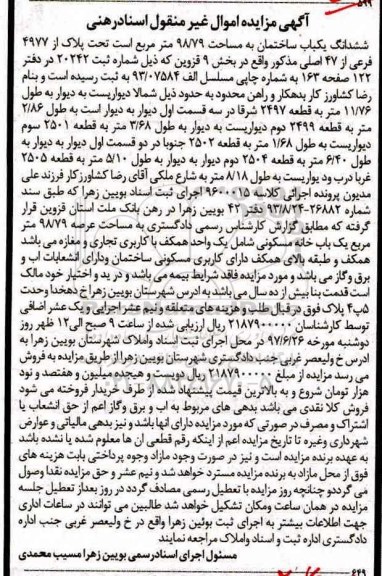 آگهی مزایده اموال غیر منقول اسنادرهنی
ششدانگ یکباب ساختمان به مساحت ۹۸/۷۹ متر مربع است تحت پلاک از ۴۹۷۷
فرعی از ۴۷ اصلی مذکور واقع در بخش ۹ قزوین که ذیل شماره ثبت ۲۰۲۴۲ در دفتر
۱۲۲ صفحه ۱۶۳ به شماره چاپی مسلسل الف ۹۳/۰۷۵۸۴ به ثبت رسیده است و بنام
رضا کشاورز کار بدهکار و راهن محدود به حدود ذیل شمالا دیواریست به دیوار به طول
۱۱/۷۶ متر به قطعه ۲۴۹۷ شرقا در سه قسمت اول دیوار به دیوار است به طول ۲/۸۶
متر به قطعه ۲۴۹۹ دوم دیواریست به دیوار به طول ۳/۶۸ متر به قطعه ۲۵۰۱ سوم
دیواریست به طول ۱/۶۸ متر به قطعه ۲۵۰۲ جنوبا در دو قسمت اول دیوار به دیوار به
طول ۶/۴۰ متر به قطعه ۲۵۰۴ دوم دیوار به دیوار به طول ۵/۱۰ متر به قطعه ۲۵۰۵
غربا درب ود یواریست به طول ۸/۱۸ متر به شارع ملکی آقای رضا کشاورز کار فرزند علی
مدیون پرونده اجرائی کلاسه ۹۶۰۰۰۱۵ اجرای ثبت اسناد بویین زهرا که طبق سند
شماره ۲۶۸۸۲-۹۳/۸/۲۴ دفتر ۴۲ بویین زهرا در رهن بانک ملت استان قزوین قرار
گرفته که مطابق گزارش کارشناس رسمی دادگستری به مساحت عرصه ۹۸/۷۹ متر
مربع یک باب خانه مسکونی شامل یک واحد همکف با کاربری تجاری و مغازه می باشد
همکف و طبقه بالای همکف دارای کاربری مسکونی ساختمان ودارای انشعابات اب و
برق وگاز می باشد و مورد مزایده فاقد شرایط بیمه می باشد و در ید و اختیار خود مالک
است قدمت بنا بیش از ده سال می باشد به ادرس شهرستان بویین زهرا خ دهخدا وحدت
۵پ۴ پلاک فوق در قبال طلب و هزینه های متعلقه و نیم عشر اجرایی و یک عشر اضافی
توسط کارشناسان ۲۱۸۷۹۰۰۰۰۰ ریال ارزیابی شده از ساعت ۹ صبح الی۱۲ ظهر روز
دوشنبه مورخه ۹۷/۶/۲۶ در محل اجرای ثبت اسناد واملاک شهرستان بویین زهرا به
ادرس خ ولیعصر غربی جنب دادگستری شهرستان بویین زهرا از طریق مزایده به فروش
می رسد مزایده از مبلغ ۲۱۸۷۹۰۰۰۰۰ ریال دویست و هیجده میلیون و هفتصد و نود
هزار تومان شروع و به بالاترین قیمت پیشنهاد شده از طرف خریدار فروخته می شود
فروش کلا نقدی می باشد بدهی های مربوط به اب و برق وگاز اعم از حق انشعاب یا
اشتراک و مصرف در صورتی که مورد مزایده دارای انها باشد و نیز بدهی مالیاتی و عوارض
شهرداری وغیره تا تاریخ مزایده اعم از اینکه رقم قطعی ان ها معلوم شده یا نشده باشد
به عهده برنده مزایده است و نیز در صورت وجود مازاد وجوه پرداختی بابت هزینه های
فوق از محل مازاد به برنده مزایده مسترد خواهد شد و نیم عشر و حق مزایده نقدا وصول
می گرددو چنانچه روز مزایده با تعطیل رسمی مصادف گردد در روز بعداز تعطیل جلسه
مزایده در همان ساعت ومکان تشکیل خواهد شد طالبین می توانند در ساعات اداری
جهت اطلاعات بیشتر به اجرای ثبت بوئین زهرا واقع در خ ولیعصر غربی جنب اداره
دادگستری اداره ثبت و اسناد واملاک مراجعه نمایند
مسئول اجرای اسنادرسمی بویین زهرا مسیب محمدی
۶۴۹